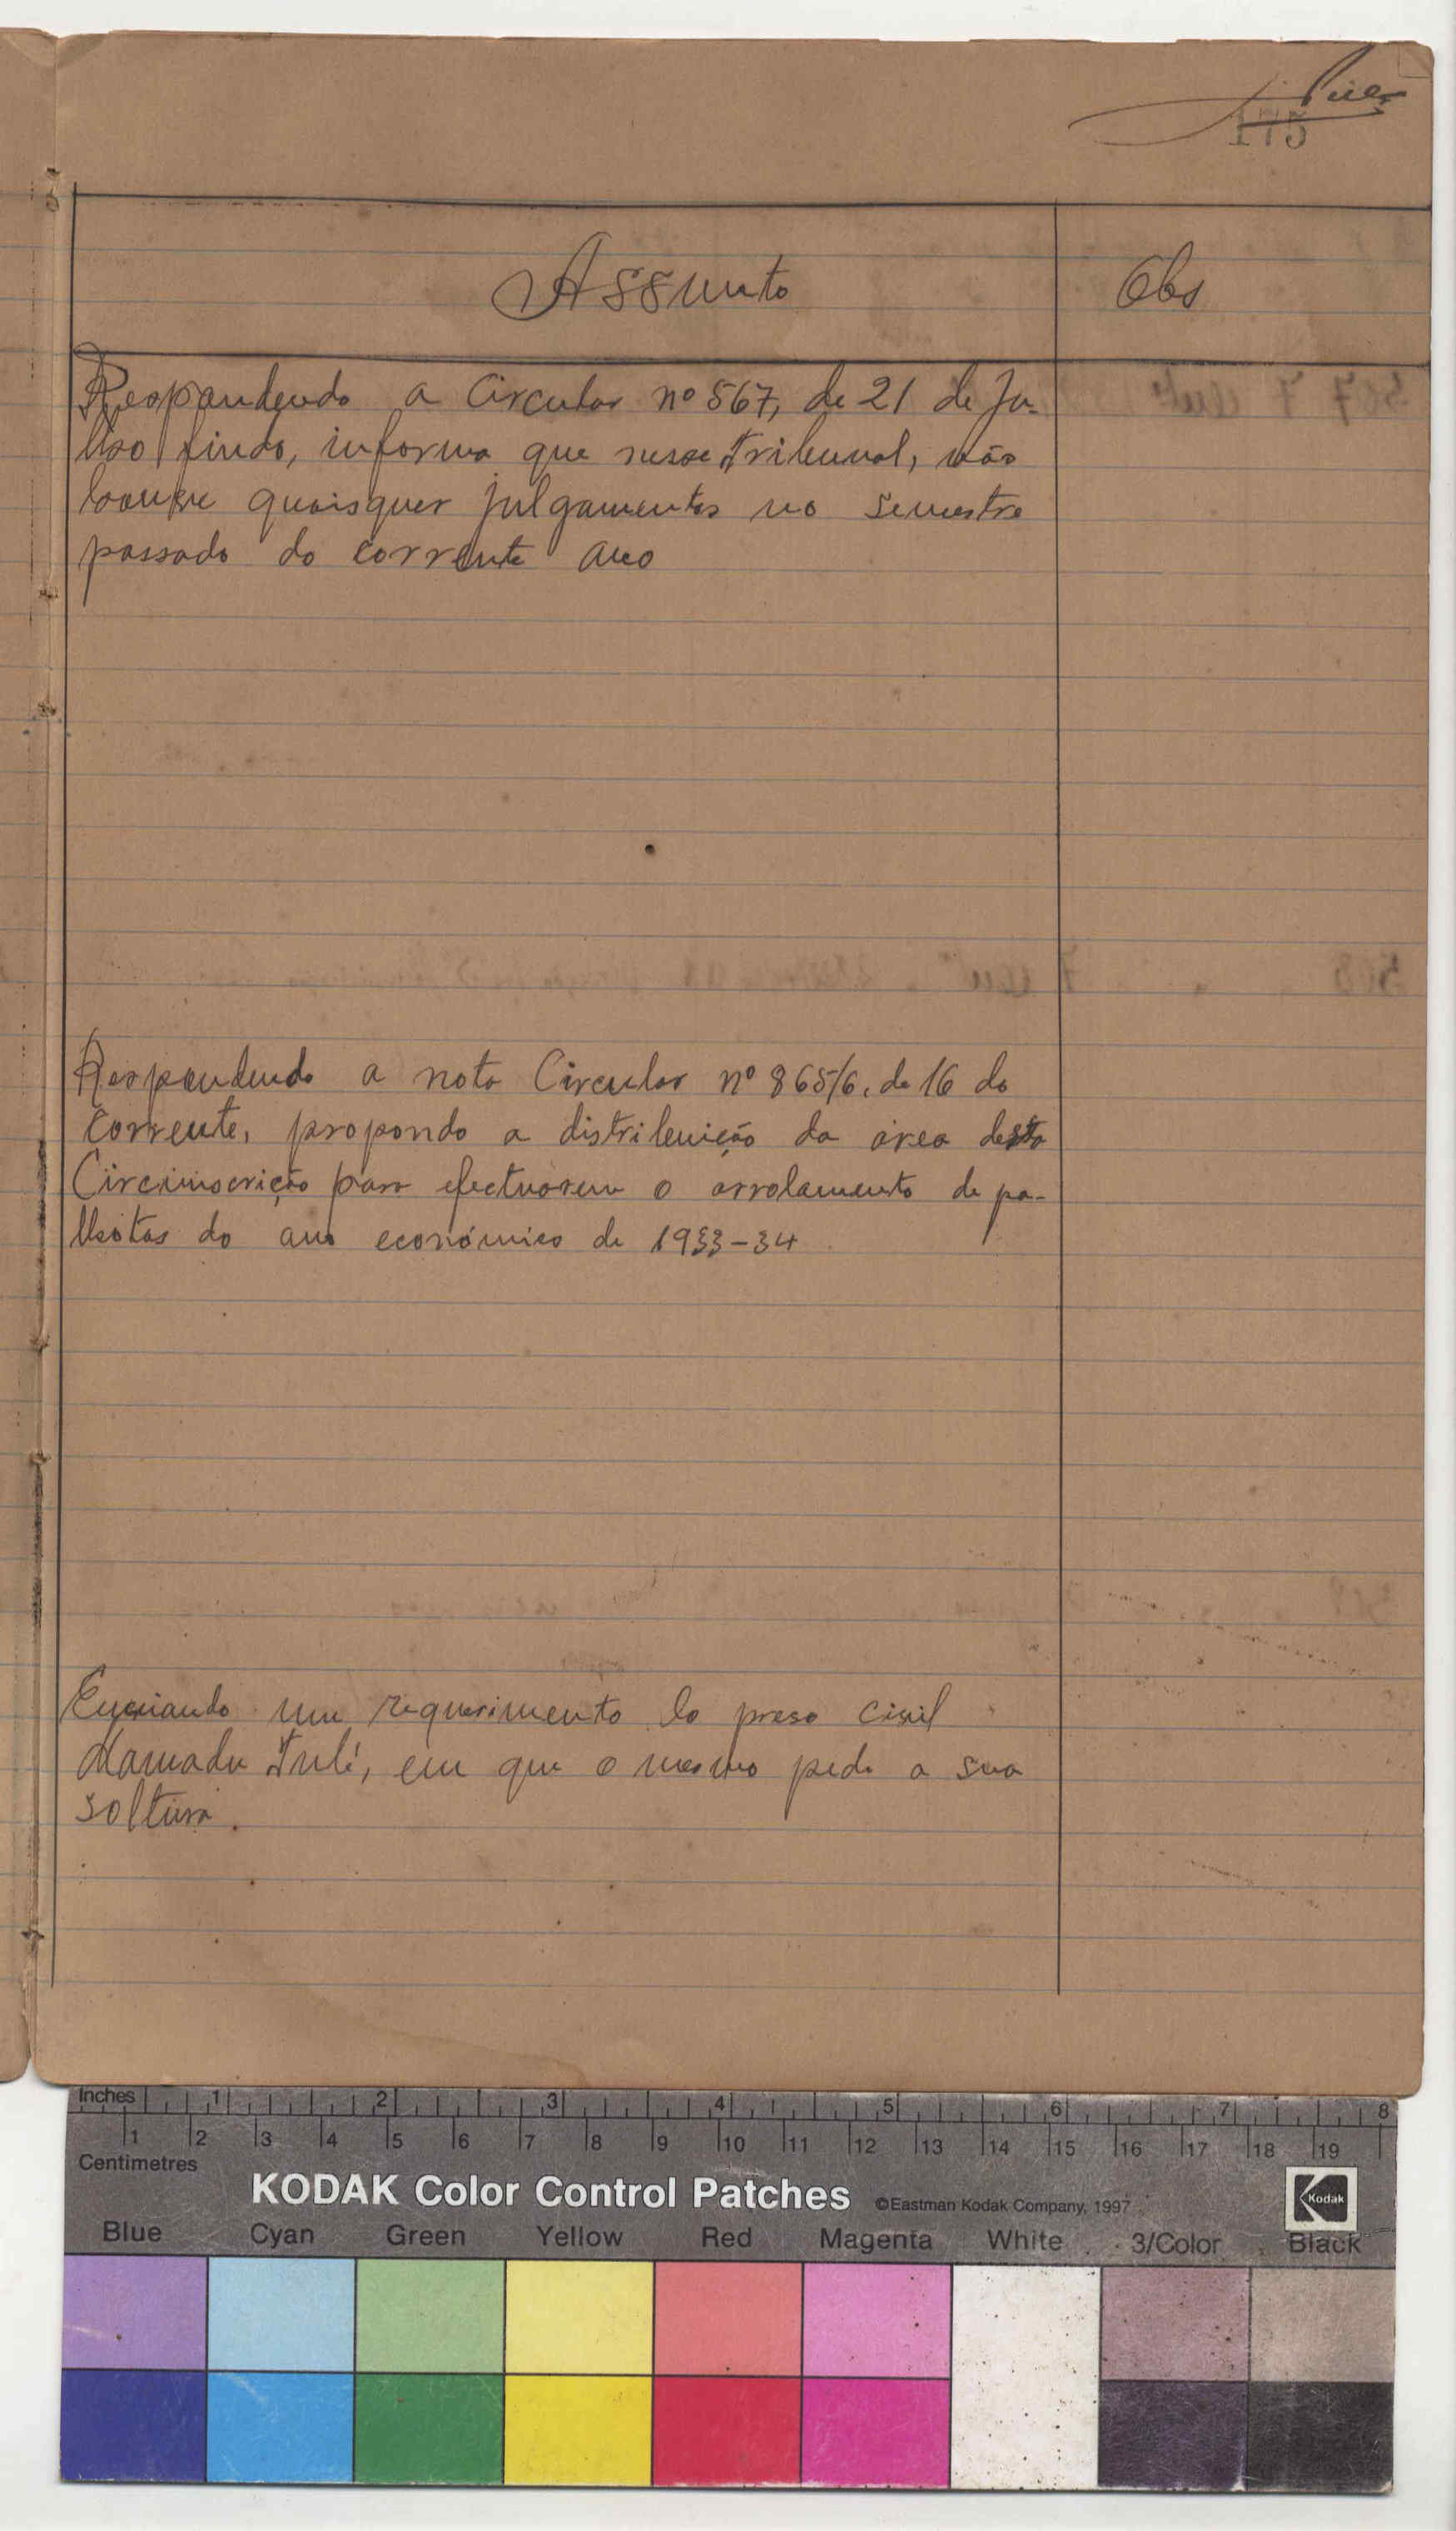 175
Assunto
Obs
Respondendo a Circular nº 567, de 21 de Ju-
lho findo, informa que nesse Tribunal, não
houve quaisquer julgamentos no semestre
passado do corrente ano
Respondendo a nota Circular nº 865/6, de 16 do
corrente, propondo a distribuição da área desta
Circunscrição para efectuarem o arrolamento de pa-
lhotas do ano económico de 1933-34
Enviando um requerimento do preso civil
Mamadu, em que o mesmo pede a sua
soltura.
Inches 1 2 3 4 5 6 7 8
1 2 3 4 5 6 7 8 9 10 11 12 13 14 15 16 17 18 19
Centimetres
KODAK Color Control Patches ©Eastman Kodak Company, 1997 Kodak
Blue Cyan Green Yellow Red Magenta White 3/Color Black